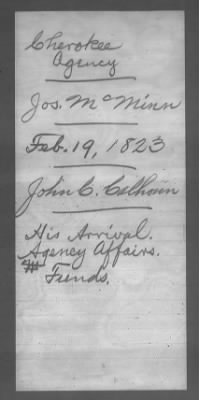 Cherokee
Agency
Jos. McMinn
Feb. 19, 1823
John C. Calhoun
His Arrival.
Agency Affairs.
" Funds.